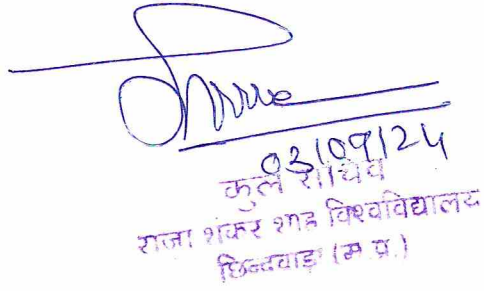 03/09/24
कुल सचिव
राजा शंकर शाह विश्वविद्यालय
छिन्दवाड़ा (म.प्र.)